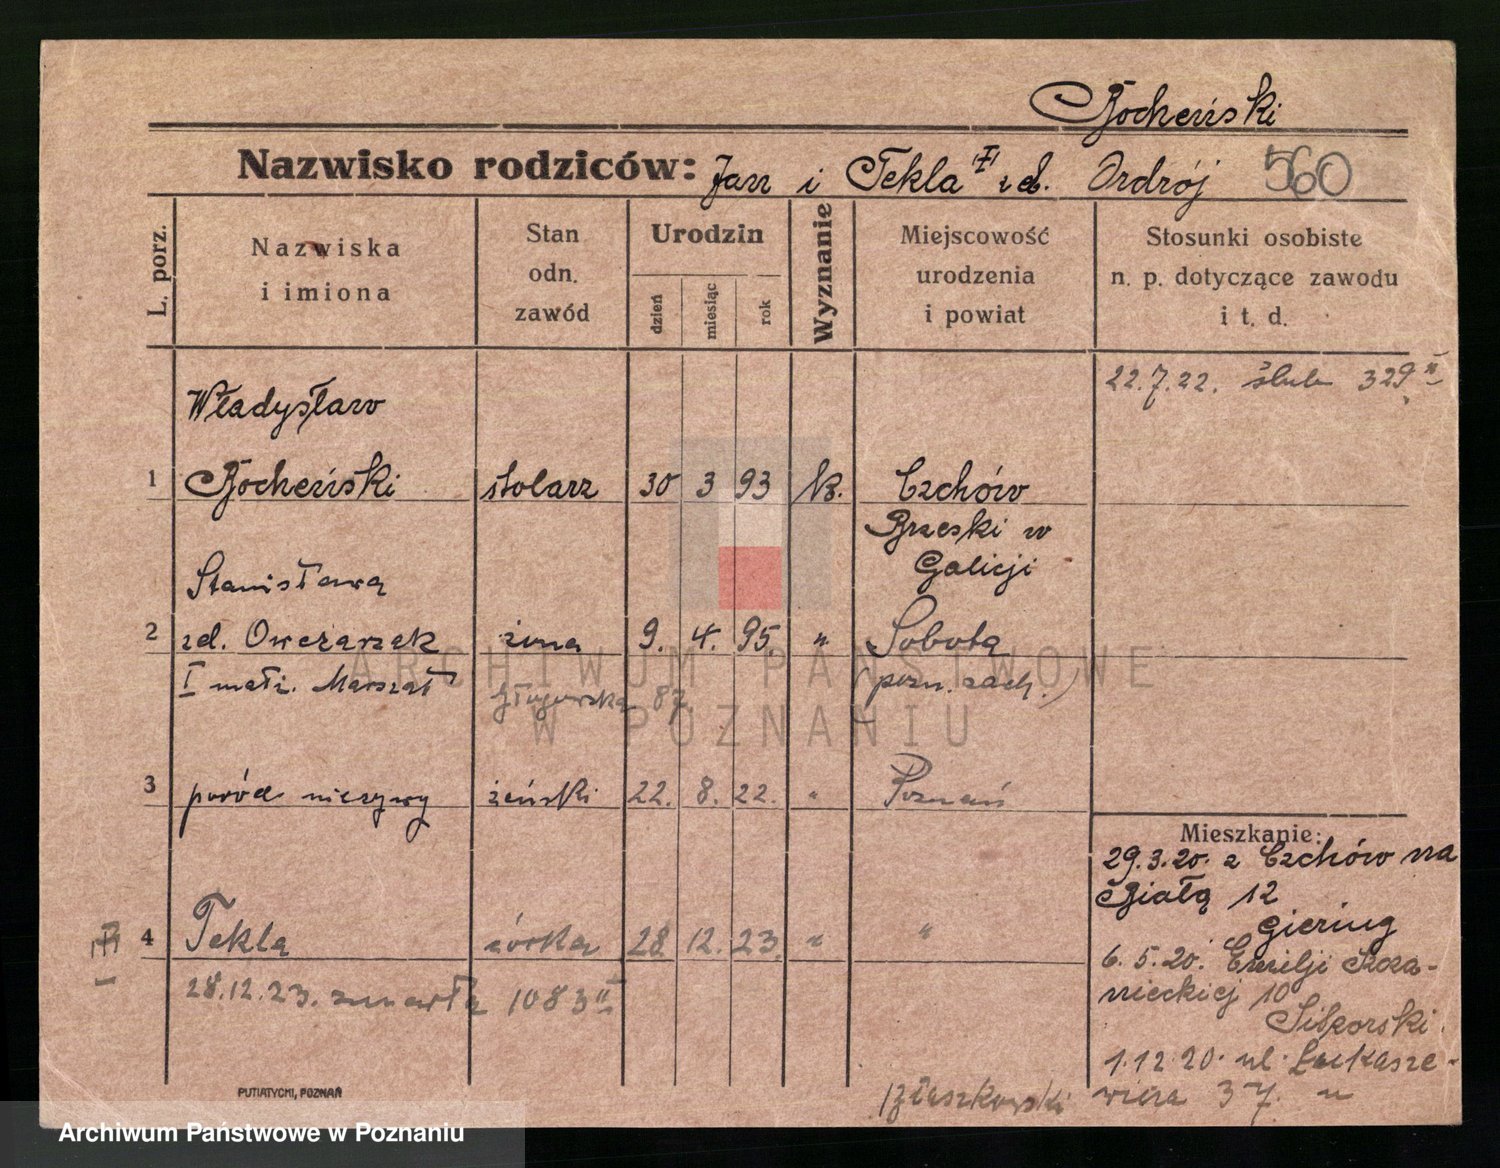 Bocheński
Nazwisko rodziców: Jan i Tekla zd. Ordrój 560
L. porz.
Nazwiska
i imiona
Stan
odn.
zawód
Urodzin
dzień
miesiąc
rok
Wyznanie
Miejscowość
urodzenia
i powiat
Stosunki osobiste
n. p. dotyczące zawodu
i t. d.
22.7.22. ślub 329 II
Władysław
1 Bocheński stolarz 30 3 93 kat. Czchów
Brzeski w
Galicji
Stanisława
2 zd. Owczarzak żona 9. 4. 95. " Sobota
I małż. Marszał 87. (pozn. zach.)
3 poród nieżywy żeński 22. 8. 22. " Poznań
4 Tekla córka 28 12. 23. " "
28.12.23. zmarła 1083 II
Mieszkanie:
29.3.20. z Czchów na
Białą 12
Giering
6.5.20. Emilji Scza-
nieckiej 10
Sikorski.
1.12.20. ul. Łukasze-
wicza 37. "
PUTIATYCKI, POZNAŃ
ARCHIWUM PAŃSTWOWE
W POZNANIU
Archiwum Państwowe w Poznaniu